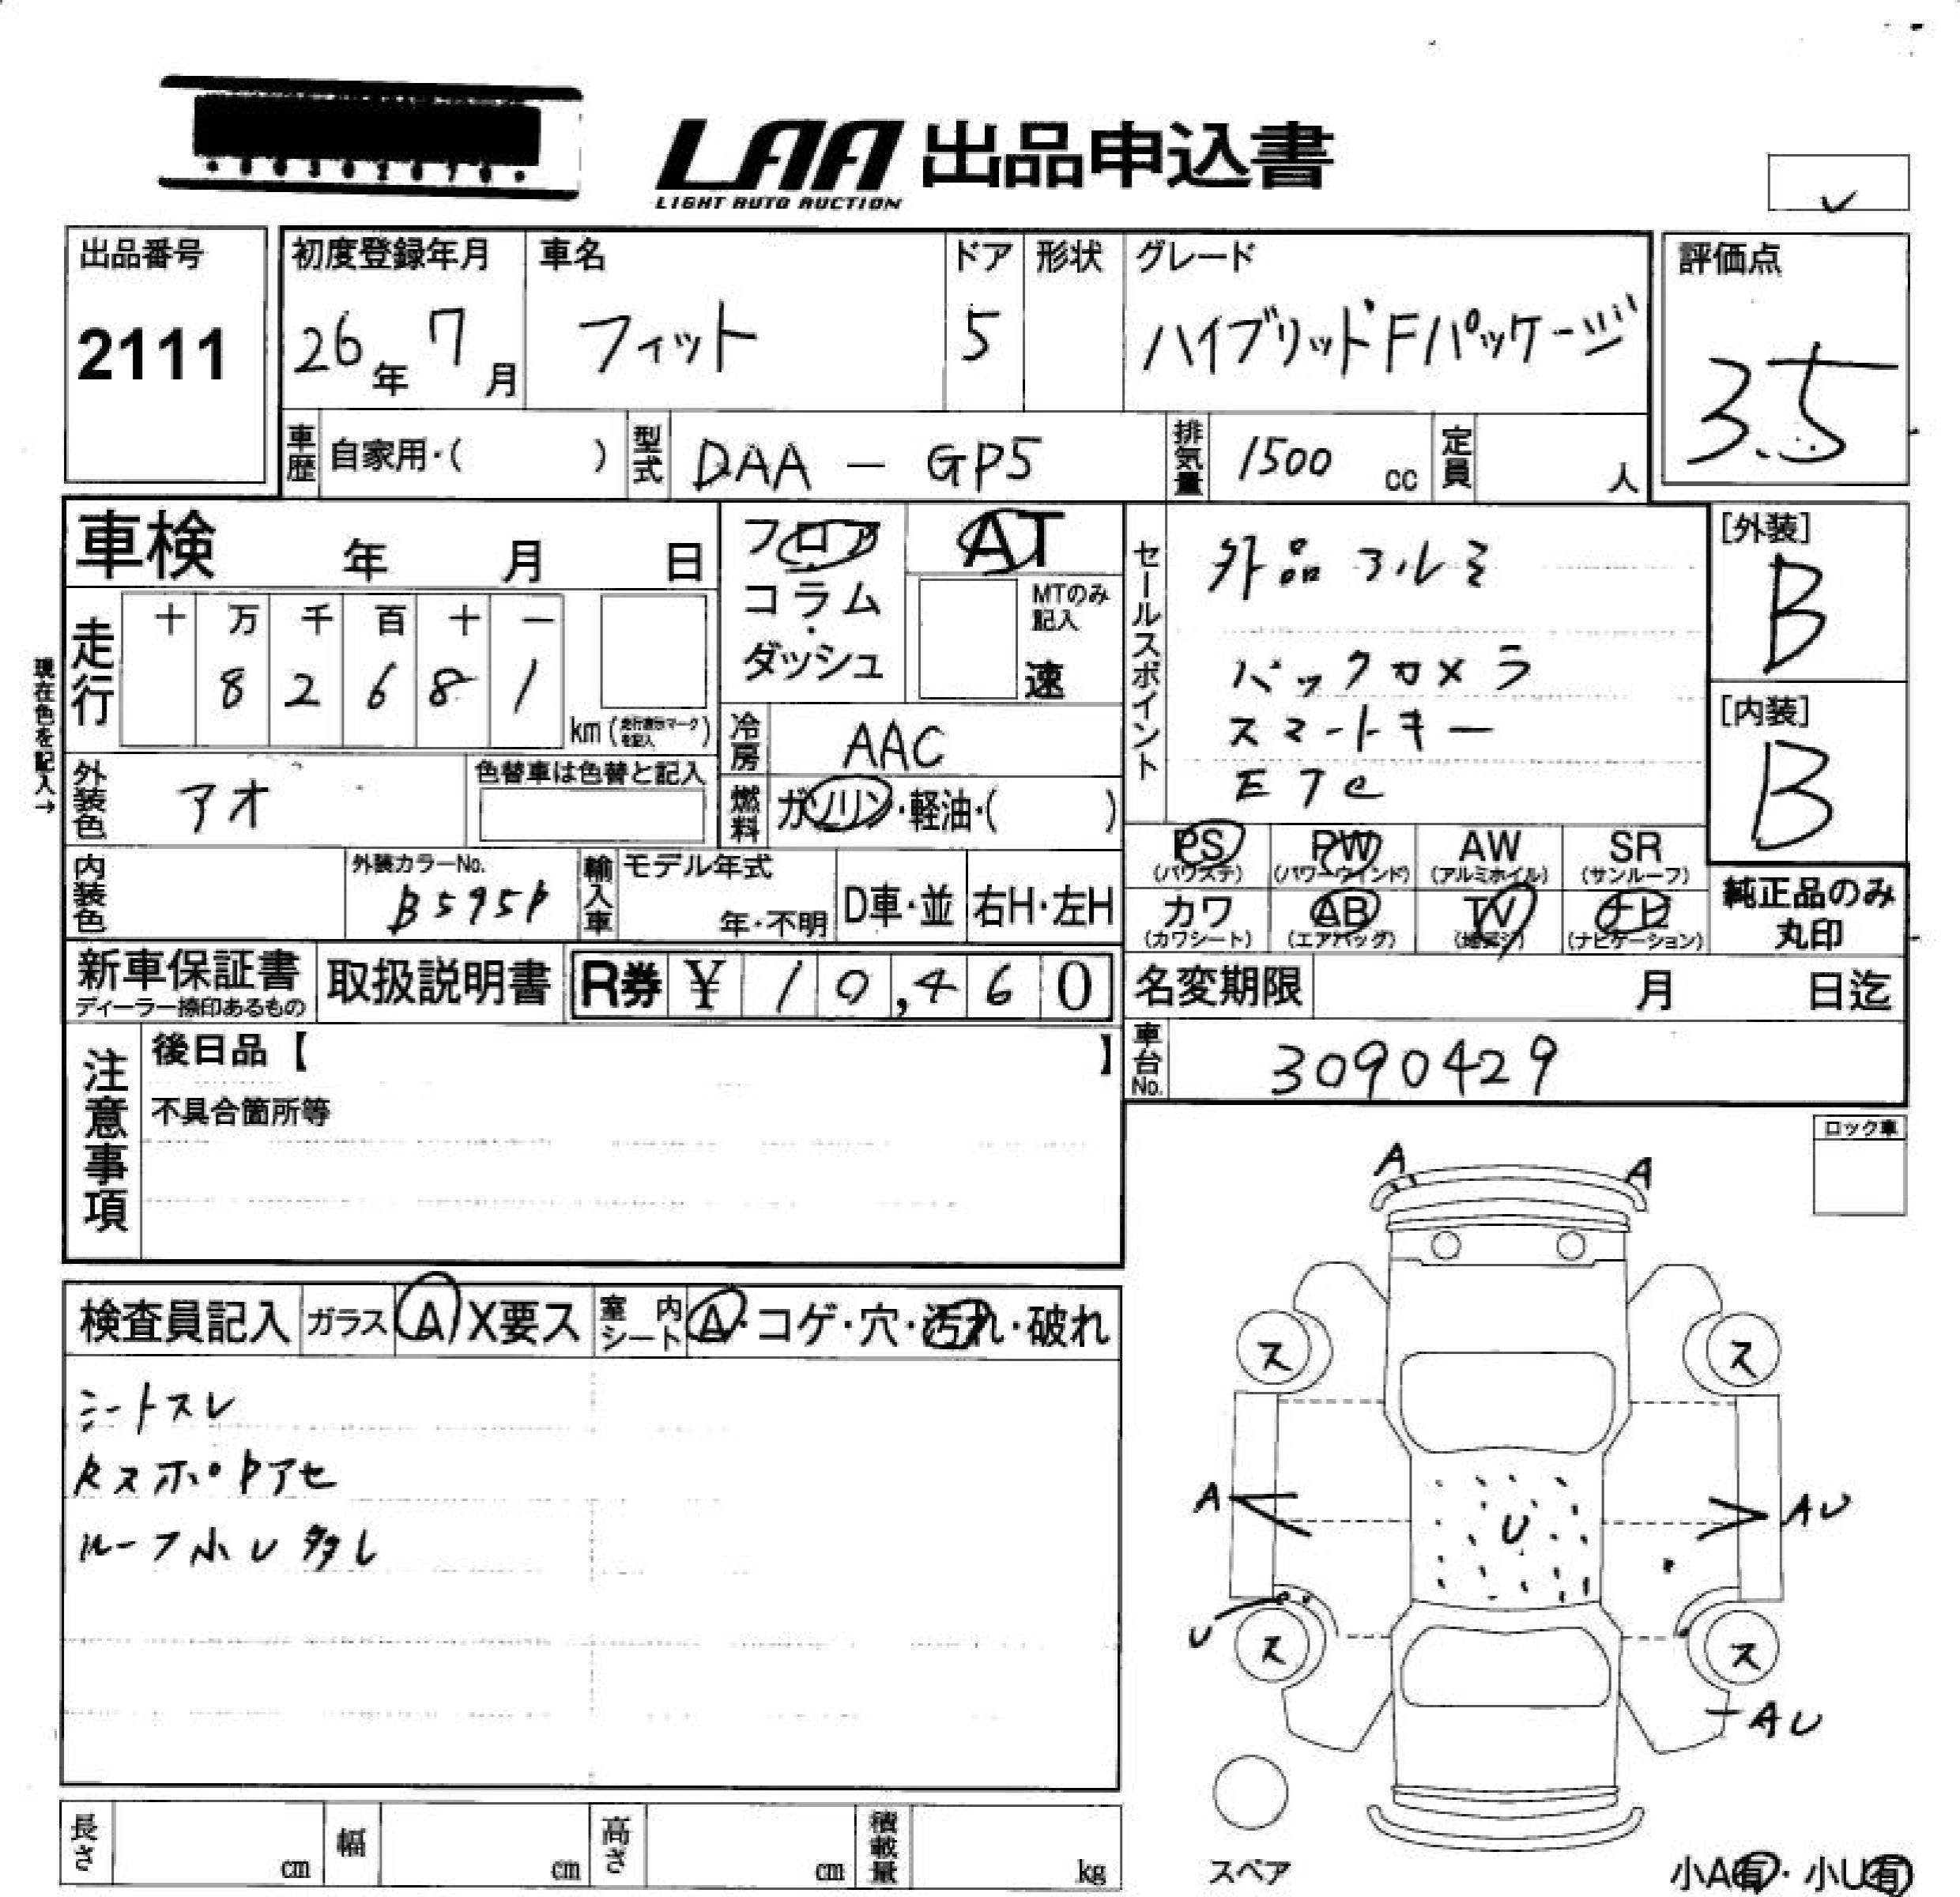 LAA 出品申込書
LIGHT AUTO AUCTION
出品番号
2111
初度登録年月
26年 7月
車名
フィット
ドア
5
形状
グレード
ハイブリッドFパッケージ
評価点
3.5
車歴 自家用・( )
型式 DAA - GP5
排気量 1500 cc
定員 人
車検 年 月 日
走行
十 万 千 百 十 一
8 2 6 8 1
km (走行表示マークを記入)
現在色を記入→
外装色 アオ
色替車は色替と記入
フロア
コラム
ダッシュ
AT
MTのみ記入
速
冷房 AAC
燃料 ガソリン・軽油・( )
セールスポイント
外品アルミ
バックカメラ
スマートキー
ETC
[外装]
B
[内装]
B
内装色
外装カラーNo.
B595P
輸入車
モデル年式
年・不明
D車・並
右H・左H
PS (パワステ)
PW (パワーウインド)
AW (アルミホイル)
SR (サンルーフ)
カワ (カワシート)
AB (エアバッグ)
TV (地デジ)
ナビ (ナビゲーション)
純正品のみ
丸印
新車保証書
ディーラー捺印あるもの
取扱説明書
R券 ¥ 10,460
名変期限 月 日迄
車台No. 3090429
注意事項
後日品【 】
不具合箇所等
ロック車
検査員記入
ガラス A X要ス
室内シート A・コゲ・穴・汚れ・破れ
シートスレ
ルーフ小U多し
A
A
ス
ス
A
U
AU
U
ス
ス
AU
スペア
長さ cm
幅 cm
高さ cm
積載量 kg
小A有・小U有